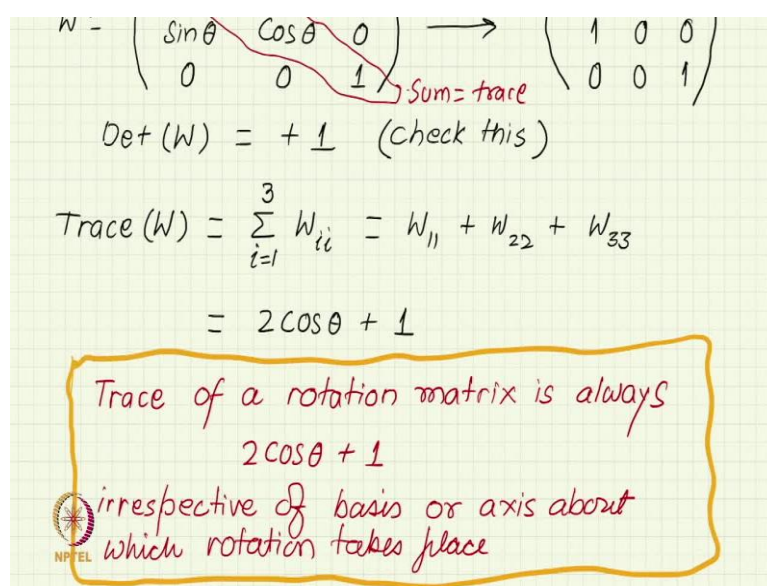 W = ( Sinθ Cosθ 0 ) → ( 1 0 0 )
0 0 1 Sum = trace 0 0 1
Det (W) = + 1 (check this)
Trace (W) = 3 Σ i=1 W_ii = W_11 + W_22 + W_33
= 2 cos θ + 1
Trace of a rotation matrix is always
2 cos θ + 1
irrespective of basis or axis about
which rotation takes place
NPTEL